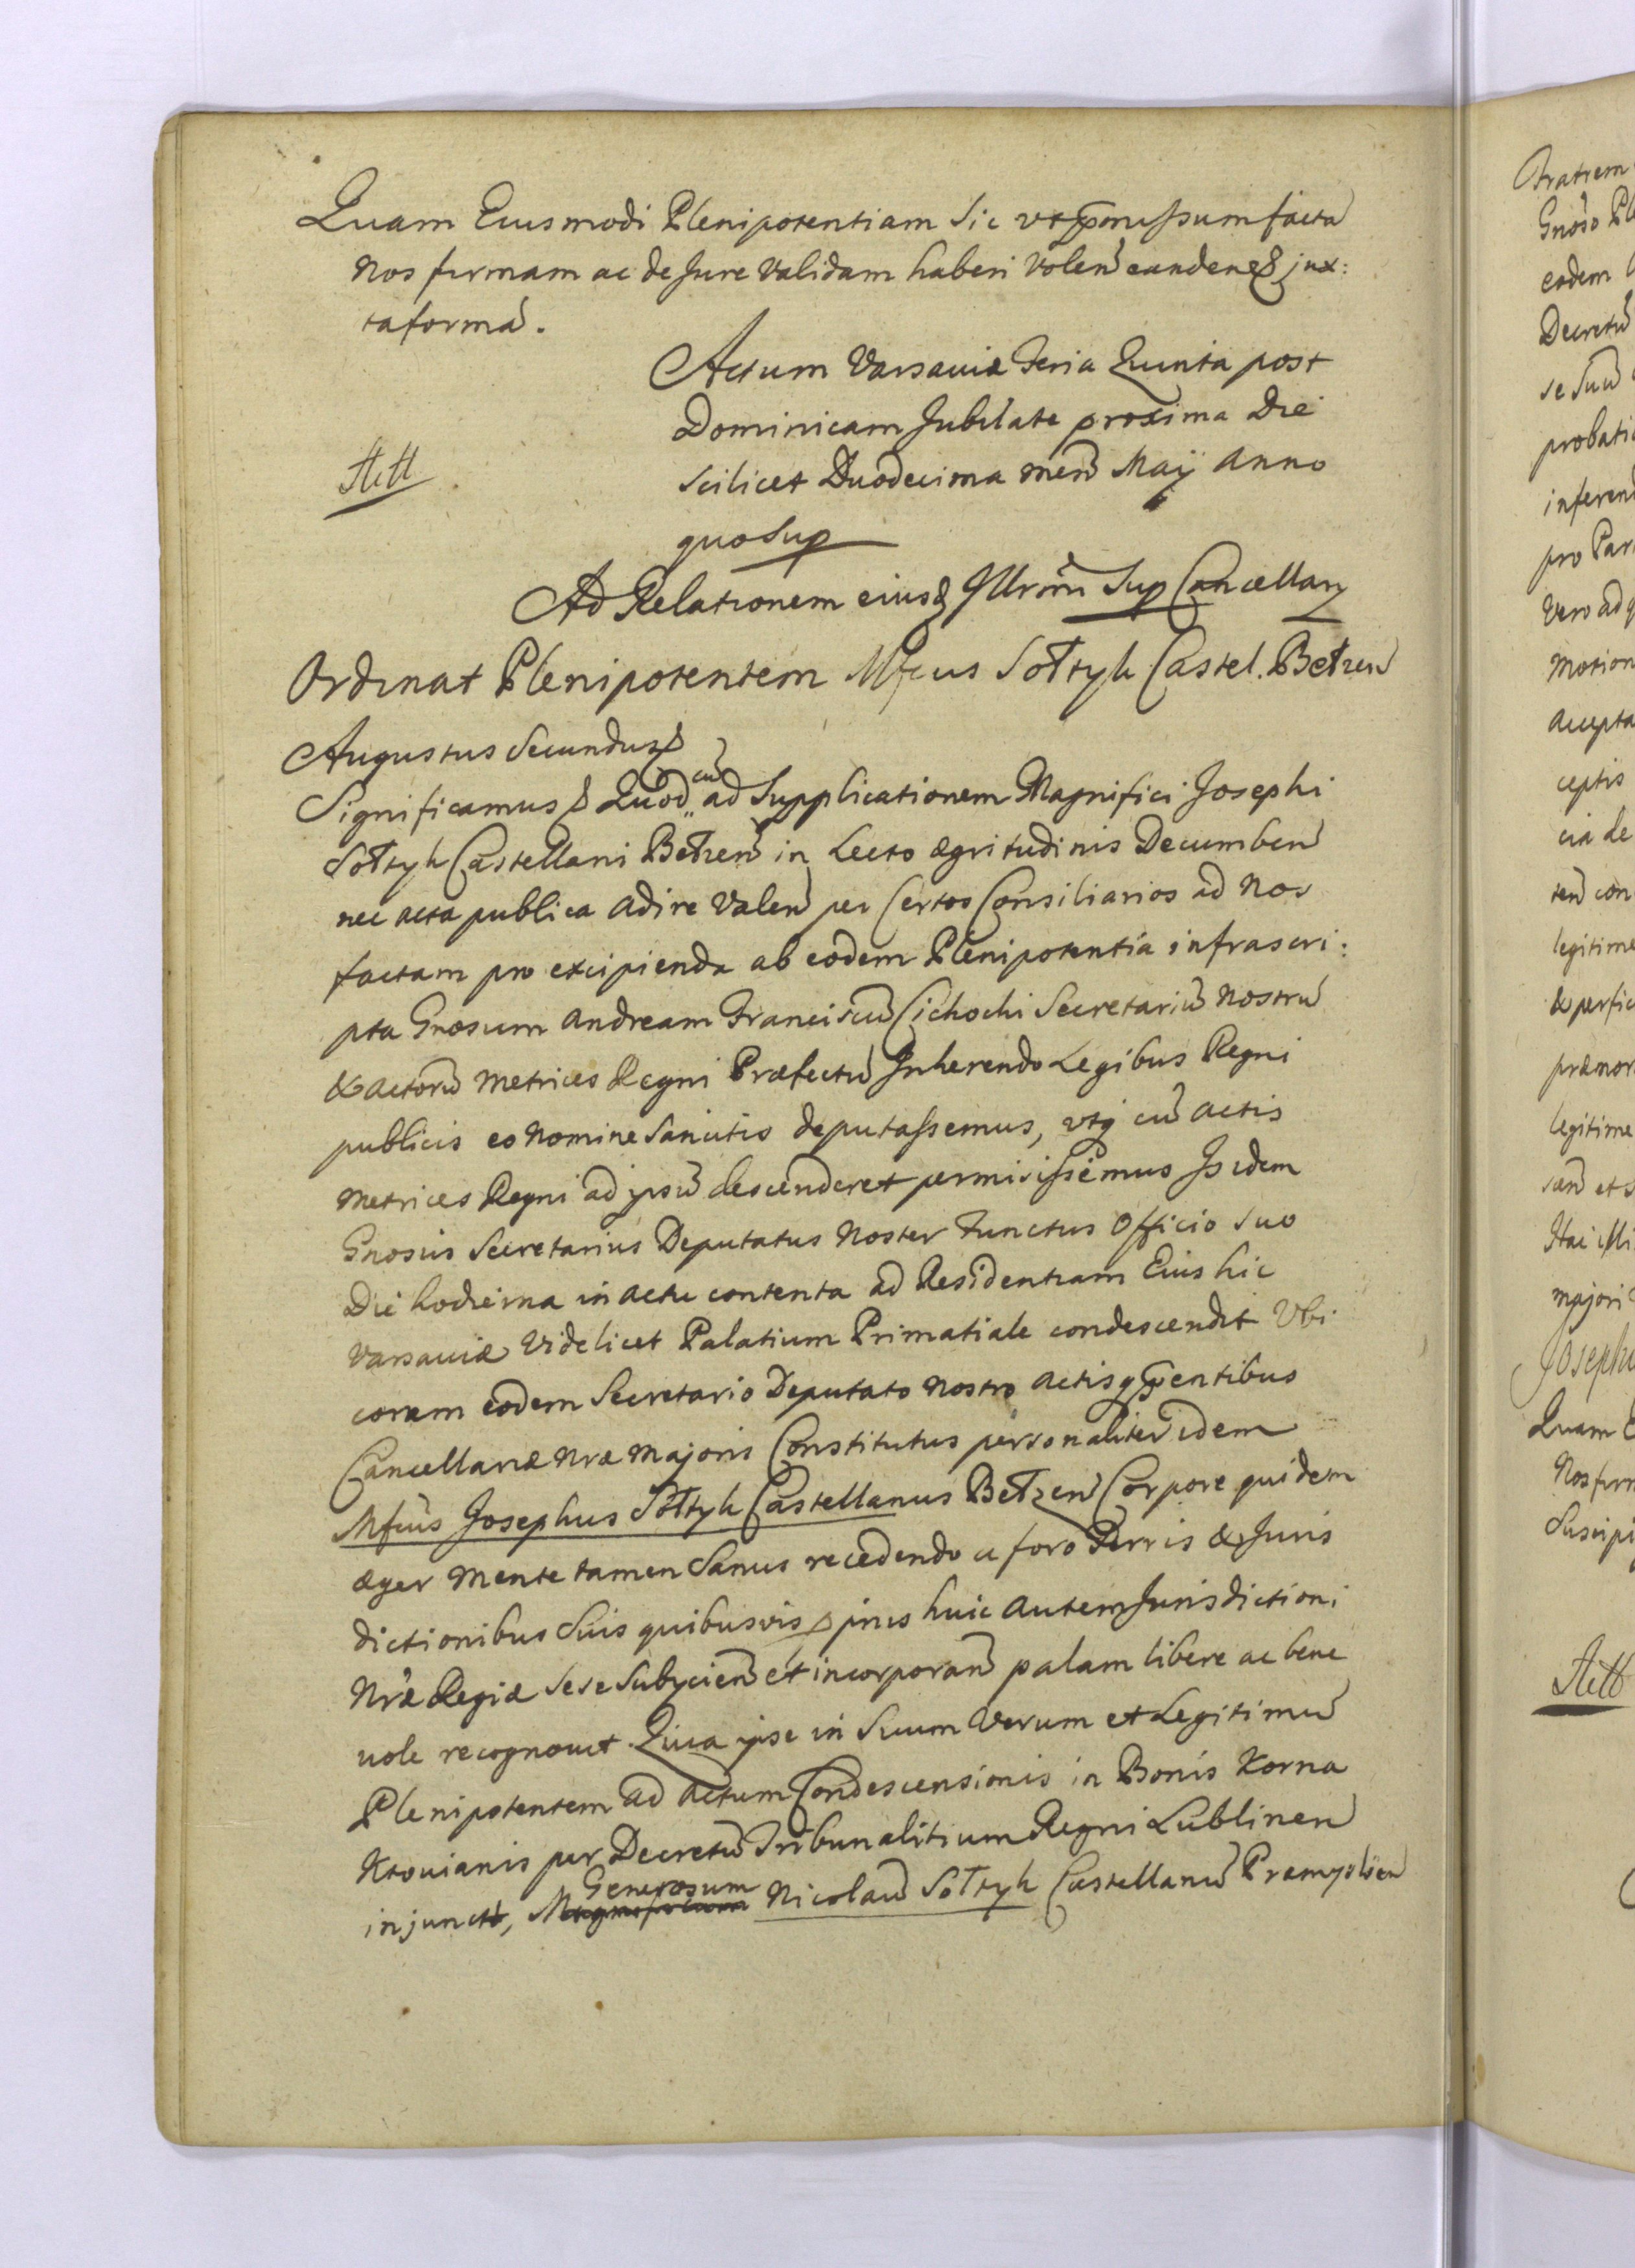 Quam Eiusmodi Plenipotentiam Sic vt pmissum facta
Nos firmam ac de Jure Validam haberi Volen eandem & jux:
ta formã.
Actum Varsaviæ Feria Quinta post
Dominicam Jubilate proxima Die
scilicet Duodecima men Maÿ Anno
quo Sup
Ad Relationem eiusd Illrmi Sup Cancellarÿ
Ordinat Plenipotentem Mfcus Sołtyk Castel. Bełzen
Augustus Secundus &
Significamus & Quod cũ ad Supplicationem Magnifici Josephi
Sołtyk Castellani Bełzen in Lecto ægritudinis Decumben
nec acta publica adire Valen per Certos Consiliarios ad Nos
factam pro excipienda ab eodem Plenipotentia infrascri:
pta Gnosum Andream Franciscũ Cichocki Secretariũ Nostrũ
& actorũ Metrices Regni Præfectũ Inherendo Legibus Regni
publicis eo Nomine Sancitis deputassemus, vtq cũ actis
Metrices Regni ad ipsũ descenderet permisissemus Is idem
Gnosus Secretarius Deputatus Noster Functus Officio suo
Die hodierna in actu contenta ad Residentiam Eius hic
Varsaviæ Videlicet Palatium Primatiale condescendit Vbi
coram eodem Secretario Deputato Nostro Actisq pntibus
Cancellariæ Nræ Majoris Constitutus personaliter idem
Mfcus Josephus Sołtyk Castellanus Bełzen Corpore quidem
æger Mente tamen Sanus recedendo a foro Terris & Juris
dictionibus Suis quibusvis pprijs huic autem Jurisdictioni
Nræ Regiæ sese Subycien et incorporan palam libere ac bene
uole recognouit Quia ipse in Suum Verum et Legitimũ
Plenipotentem ad Actum Condescensionis in Bonis Korna
Ktouianis per Decretũ Tribunalitium Regni Lublinen
Generosum
injunctã, Magnificum Nicolaũ Sołtyk Castellanũ Præmyslien
Fratrem
Gnoso Ple
eodem
Decretũ
se Suũ
probati
inferen
pro Par
Vero ad
Motion
Accepta
ceptis
cia de
ten con
legitime
& perfic
præmor
legitime
san et s
majori
Josephu
Quam E
Nos firm
Suscipi